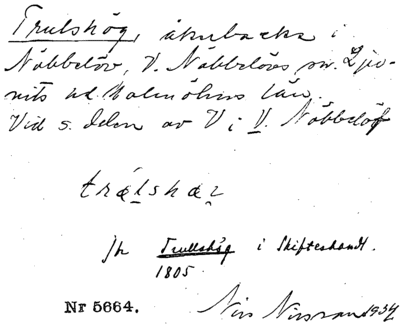 Trulshög, åkerbacke i
Nöbbelöv, V. Nöbbelövs sn. Lju-
nits hd Malmöhus län.
Vid s. delen av V i V. Nöbbelöf
Jh Trullshög i Skifteshandl.
1805.
Nr 5664. Nils Nilsson 1934